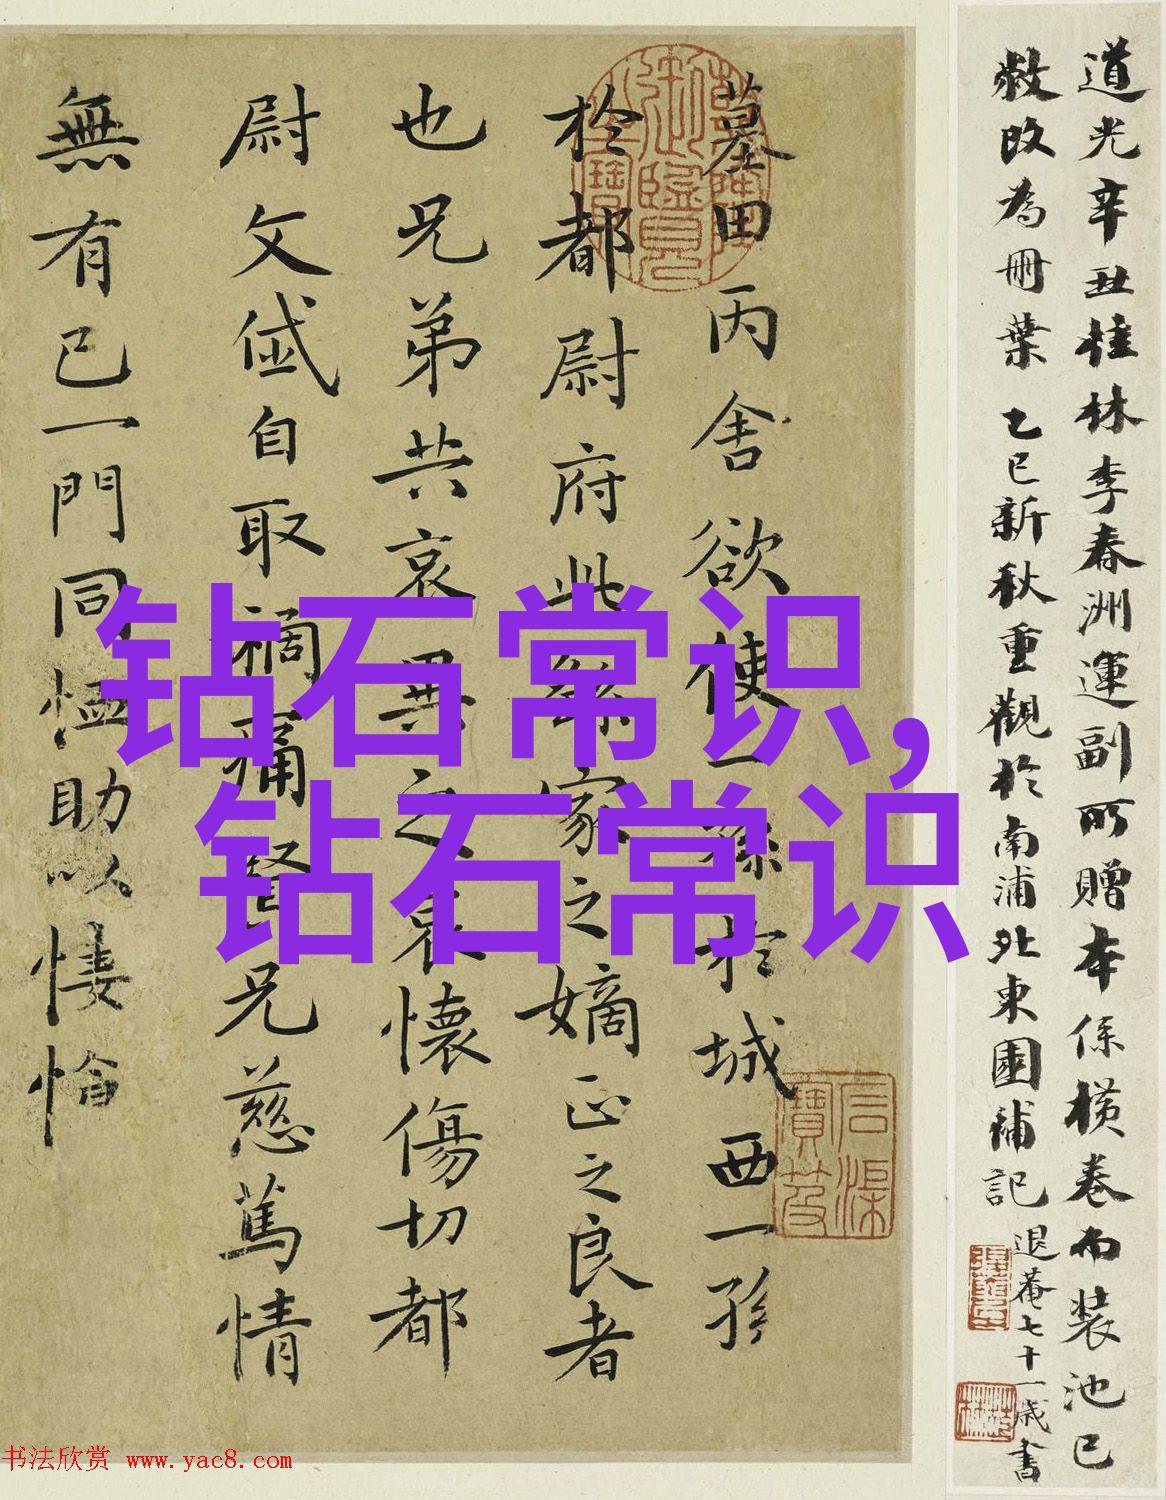 道光辛丑桂林李春洲運副所贈本係橫卷而裝池已
敝改為冊葉 乙巳新秋重觀於南浦北東園補記 退菴七十一歲書
墓田丙舍欲使一孫於城西一孫
於都尉府此繇家之嫡正之良者
也兄弟共哀異之哀懷傷切都
尉文岱自取禍痛賢兄慈篤情
無有已一門同恤助以悽愴
钻石常识,
钻石常识
御覽
書法欣赏 www.yac8.com